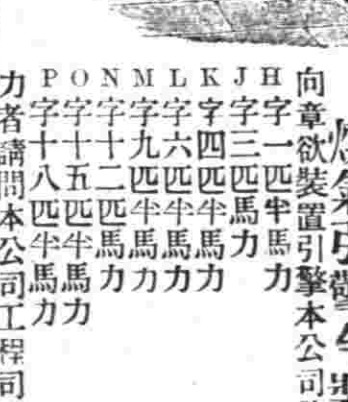 向章欲裝置引擎本公司
H字一匹半馬力
J字三匹馬力
K字四匹半馬力
L字六匹半馬力
M字九匹半馬力
N字十二匹馬力
O字十五匹半馬力
P字十八匹半馬力
力者請問本公司工程司